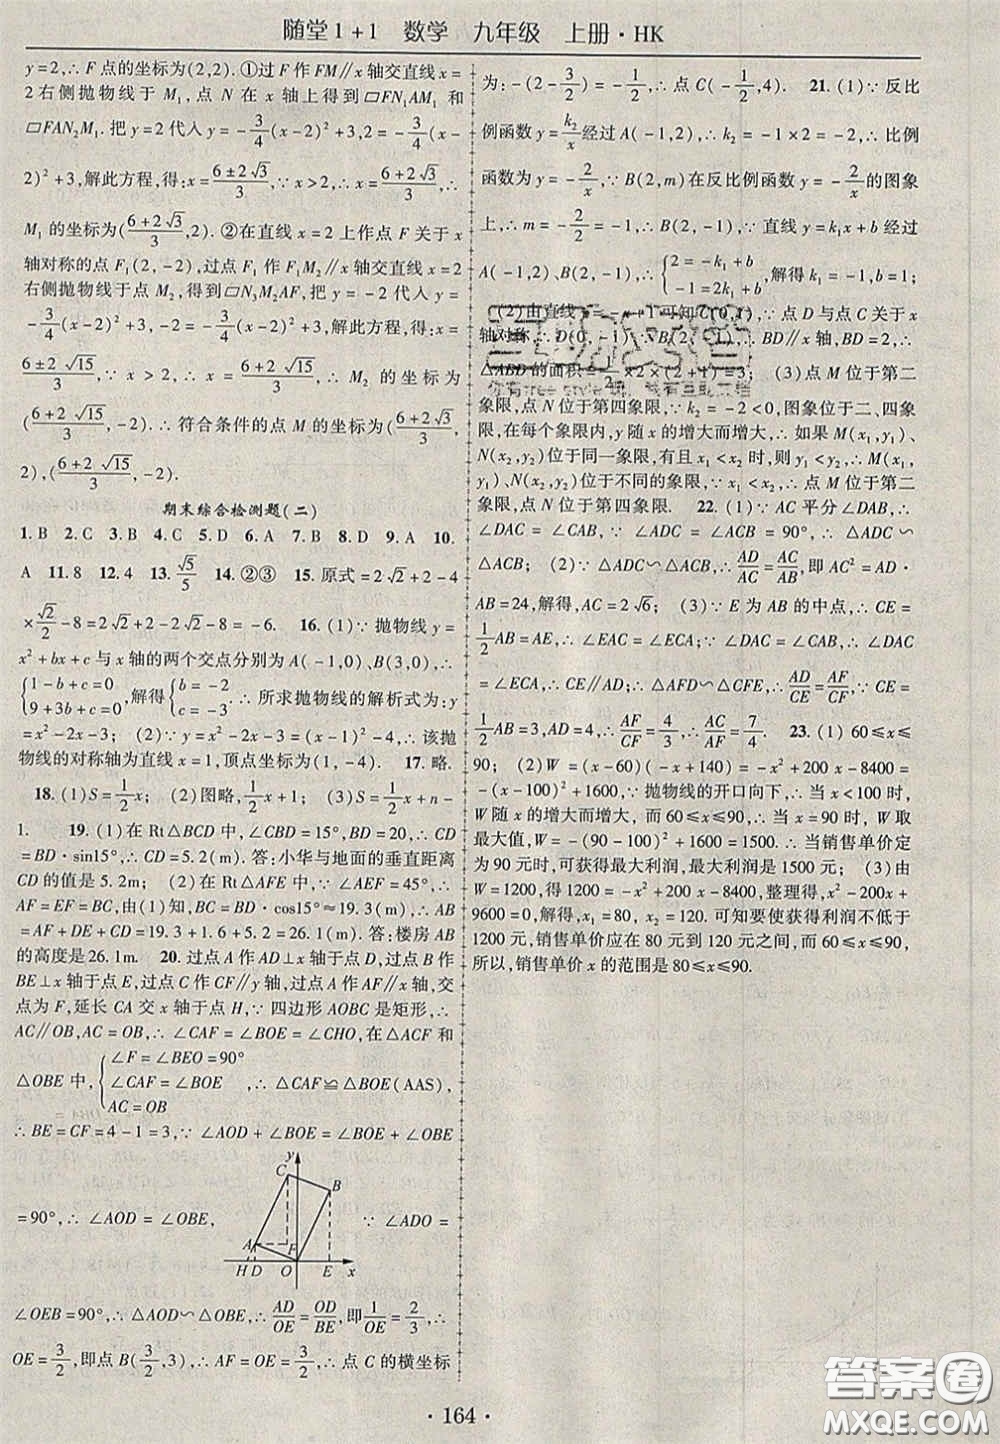 随堂1+1 数学 九年级 上册·HK
y=2,∴F点的坐标为(2,2). ①过F作FM∥x轴交直线x=
2右侧抛物线于M₁,点N在x轴上得到▱FN₁AM₁和
▱FAN₂M₁. 把y=2代入y=-3/4(x-2)²+3,2=-3/4(x-
2)²+3,解此方程,得:x=(6±2√3)/3,∵x>2,∴x=(6+2√3)/3,∴
M₁的坐标为((6+2√3)/3,2). ②在直线x=2上作点F关于x
轴对称的点F₁(2,-2),过点F₁作F₁M₂∥x轴交直线x=2
右侧抛物线于点M₂,得到▱N₃M₂AF,把y=-2代入y=
-3/4(x-2)²+3,得:-2=-3/4(x-2)²+3,解此方程,得:x=
(6±2√15)/3,∵x>2,∴x=(6+2√15)/3,∴M₂的坐标为
((6+2√15)/3,-2). ∴符合条件的点M的坐标为((6+2√3)/3,
2),((6+2√15)/3,-2).
期末综合检测题(二)
1.B 2.C 3.B 4.C 5.D 6.A 7.B 8.D 9.A 10.
A 11.8 12.4 13.√5/5 14.②③ 15.原式=2√2+2-4
×√2/2-8=2√2+2-2√2-8=-6. 16.(1)∵抛物线y=
x²+bx+c与x轴的两个交点分别为A(-1,0)、B(3,0),∴
{1-b+c=0 9+3b+c=0,解得{b=-2 c=-3. ∴所求抛物线的解析式为:y
=x²-2x-3; (2)∵y=x²-2x-3=(x-1)²-4,∴该抛
物线的对称轴为直线x=1,顶点坐标为:(1,-4). 17.略.
18.(1)S=1/2x; (2)图略,1/2x+1; (3)S=1/2x+n-
1. 19.(1)在Rt△BCD中,∠CBD=15°,BD=20,∴CD
=BD·sin15°,∴CD=5.2(m). 答:小华与地面的垂直距离
CD的值是5.2m; (2)在Rt△AFE中,∵∠AEF=45°,∴
AF=EF=BC,由(1)知,BC=BD·cos15°≈19.3(m),∴AB
=AF+DE+CD=19.3+1.6+5.2=26.1(m). 答:楼房AB
的高度是26.1m. 20.过点A作AD⊥x轴于点D,过点B作
BE⊥x轴于点E,过点C作CF∥y轴,过点A作AF∥x轴,
交点为F,延长CA交x轴于点H,∵四边形AOBC是矩形,∴
AC∥OB,AC=OB,∴∠CAF=∠BOE=∠CHO,在△ACF和
△OBE中,{∠F=∠BEO=90° ∠CAF=∠BOE AC=OB,∴△CAF≌△BOE(AAS),
∴BE=CF=4-1=3,∵∠AOD+∠BOE=∠BOE+∠OBE
=90°,∴∠AOD=∠OBE, ∵∠ADO=
y C B A F H D O E x
∠OEB=90°,∴△AOD∽△OBE,∴AD/OE=OD/BE,即1/OE=2/3,∴
OE=3/2,即点B(3/2,3),∴AF=OE=3/2,∴点C的横坐标
为:-(2-3/2)=-1/2,∴点C(-1/2,4). 21.(1)∵反比
例函数y=k₂/x经过A(-1,2),∴k₂=-1×2=-2,∴比例
函数为y=-2/x,∵B(2,m)在反比例函数y=-2/x的图象
上,∴m=-2/2=-1,∴B(2,-1)∵直线y=k₁x+b经过
A(-1,2)、B(2,-1),∴{2=-k₁+b -1=2k₁+b,解得k₁=-1,b=1;
(2)由直线y=-x+1可知C(0,1),∵点D与点C关于x
轴对称,∴D(0,-1),∵B(2,-1),∴BD∥x轴,BD=2,∴
△ABD的面积=1/2×2×(2+1)=3; (3)点M位于第二
象限,点N位于第四象限,∵k₂=-2<0,图象位于二、四象
限,在每个象限内,y随x的增大而增大,∴如果M(x₁,y₁)、
N(x₂,y₂)位于同一象限,有且x₁<x₂,就有y₁<y₂,M(x₁,
y₁)、N(x₂,y₂)位于不同的象限,∵x₁<x₂,∴点M位于第二
象限,点N位于第四象限. 22.(1)∵AC平分∠DAB,∴
∠DAC=∠CAB,∵∠ADC=∠ACB=90°,∴△ADC∽
△ACB; (2)∵△ADC∽△ACB,∴AD/AC=AC/AB,即AC²=AD·
AB=24,解得,AC=2√6; (3)∵E为AB的中点,∴CE=
1/2AB=AE,∴∠EAC=∠ECA;∵∠DAC=∠CAB,∴∠DAC
=∠ECA,∴CE∥AD;∴△AFD∽△CFE,∴AD/CE=AF/CF,∵CE=
1/2AB=3,AD=4,∴AF/CF=4/3,∴AC/AF=7/4. 23.(1)60≤x≤
90; (2)W=(x-60)(-x+140)=-x²+200x-8400=
-(x-100)²+1600,∵抛物线的开口向下,∴当x<100时,
W随x的增大而增大,而60≤x≤90,∴当x=90时,W取
最大值,W=-(90-100)²+1600=1500. ∴当销售单价定
为90元时,可获得最大利润,最大利润是1500元; (3)由
W=1200,得1200=-x²+200x-8400,整理得,x²-200x+
9600=0,解得,x₁=80,x₂=120. 可知要使获得利润不低于
1200元,销售单价应在80元到120元之间,而60≤x≤90,
所以,销售单价x的范围是80≤x≤90.
·164·
答案圈
MXQE.COM